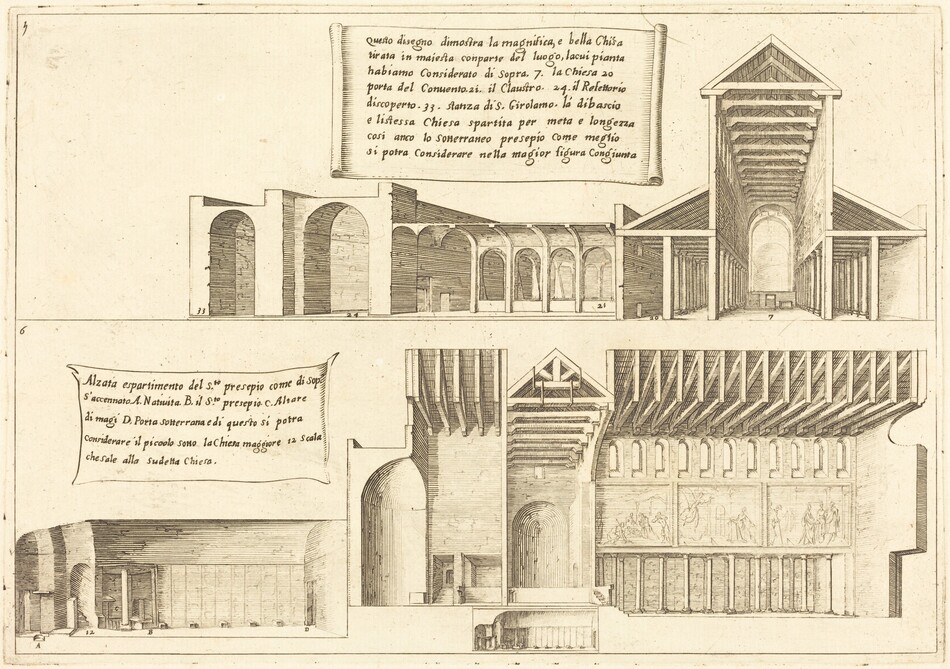 5
Questo disegno dimostra la magnifica, e bella Chiesa
tirata in maiesta conparte del luogo, lacui pianta
habiamo Considerato di Sopra. 7. la Chiesa 20
porta del Conuento. 21. il Claustro. 24. il Refettorio
discoperto. 33. stanza di S. Girolamo. la dibascio
e listessa Chiesa spartita per meta e longezza
cosi anco lo soterraneo presepio Come meglio
si potra Considerare nella magior figura Congiunta
33
24
21
20
7
6
Alzata espartimento del S.to presepio come di Sopa
s'accennato A. Natiuita. B. il S.to presepio. C. Altare
di magi D. Porta soterrana e di questo si potra
considerare il piccolo soto la Chiesa maggiore 12 Scala
che sale alla sudetta Chiesa.
A
12
B
D